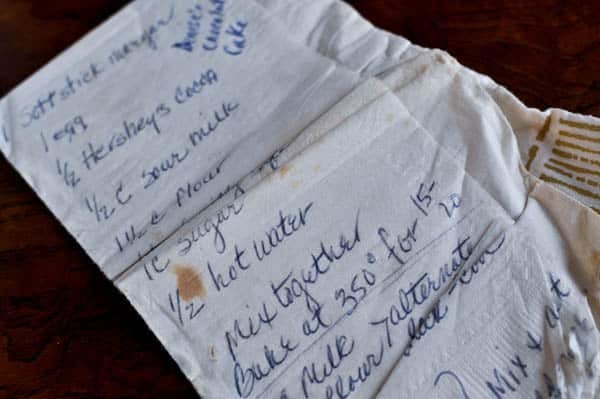 Chocolate
Cake
1 soft stick margar
1 egg
1/2 Hershey's Cocoa
1/2 C sour milk
1 1/2 C Flour
1 C sugar
1/2 hot water
Mix together
Bake at 350° for 15-
20
Milk } alternate
Flour
Mix &